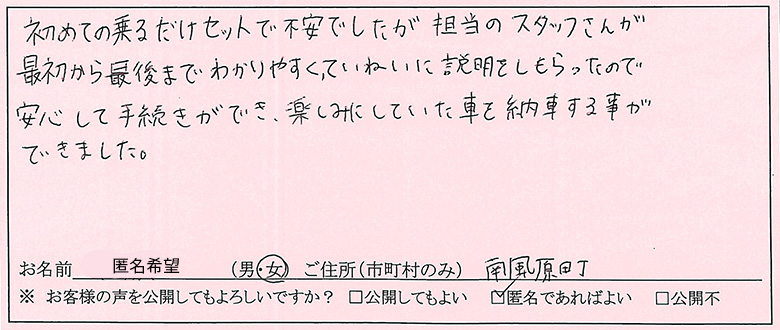 初めての乗るだけセットで不安でしたが 担当のスタッフさんが
最初から最後までわかりやすく、ていねいに説明をしもらったので
安心して手続きができ、楽しみにしていた車を納車する事が
できました。
お名前 匿名希望 (男・女) ご住所(市町村のみ) 南風原町
※ お客様の声を公開してもよろしいですか? □公開してもよい ☑匿名であればよい □公開不